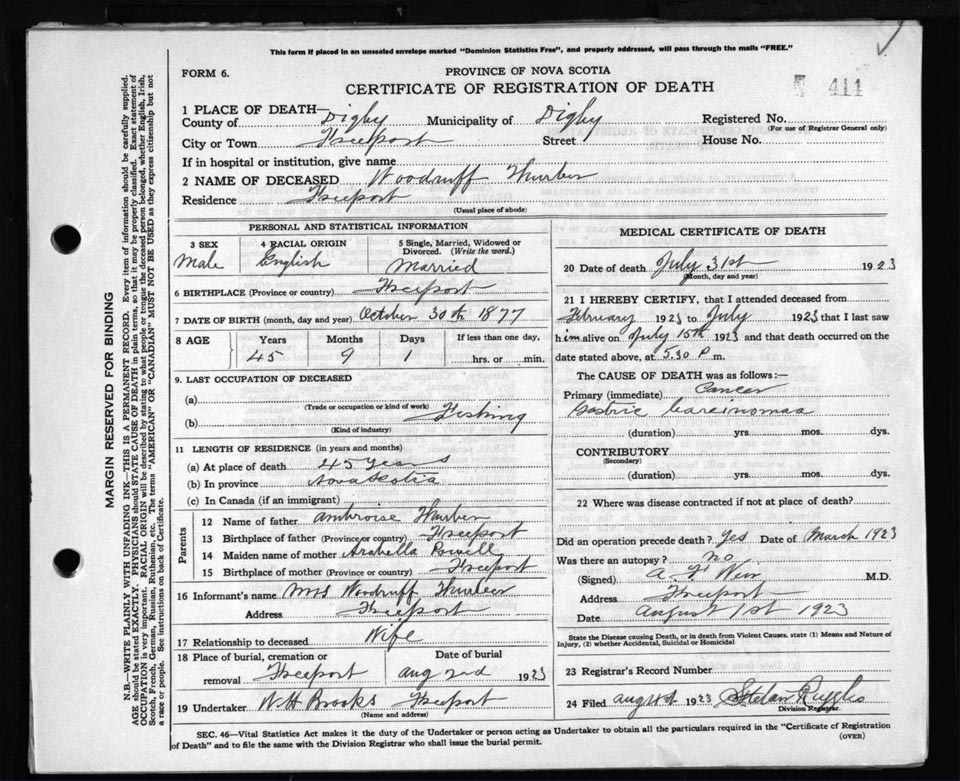 This form if placed in an unsealed envelope marked "Dominion Statistics Free", and properly addressed, will pass through the mails "FREE."
FORM 6.
PROVINCE OF NOVA SCOTIA
CERTIFICATE OF REGISTRATION OF DEATH
411
1 PLACE OF DEATH—
County of Digby Municipality of Digby Registered No.
(For use of Registrar General only)
City or Town Freeport Street House No.
If in hospital or institution, give name
2 NAME OF DECEASED Woodruff Thurber
Residence Freeport
(Usual place of abode)
PERSONAL AND STATISTICAL INFORMATION
3 SEX 4 RACIAL ORIGIN 5 Single, Married, Widowed or Divorced. (Write the word.)
Male English Married
6 BIRTHPLACE (Province or country) Freeport
7 DATE OF BIRTH (month, day and year) October 30th 1877
8 AGE Years Months Days If less than one day,
45 9 1 hrs. or min.
9. LAST OCCUPATION OF DECEASED
(a)
(Trade or occupation or kind of work)
(b) Fishing
(Kind of industry)
11 LENGTH OF RESIDENCE (in years and months)
(a) At place of death 45 Years
(b) In province Nova Scotia
(c) In Canada (if an immigrant)
Parents
12 Name of father Ambroise Thurber
13 Birthplace of father (Province or country) Freeport
14 Maiden name of mother Arabella Powell
15 Birthplace of mother (Province or country) Freeport
16 Informant's name Mrs Woodruff Thurber
Address Freeport
17 Relationship to deceased Wife
18 Place of burial, cremation or removal Date of burial
Freeport Aug 2nd 1923
19 Undertaker W H Brooks Freeport
(Name and address)
MEDICAL CERTIFICATE OF DEATH
20 Date of death July 31st 1923
(Month, day and year)
21 I HEREBY CERTIFY, that I attended deceased from
February 1923 to July 1923 that I last saw
him alive on July 15th 1923 and that death occurred on the
date stated above, at 5.30 P m.
The CAUSE OF DEATH was as follows:—
Primary (immediate) Cancer
Gastric Carcinomaa
(duration) yrs. mos. dys.
CONTRIBUTORY
(Secondary)
(duration) yrs. mos. dys.
22 Where was disease contracted if not at place of death?
Did an operation precede death? Yes Date of March 1923
Was there an autopsy? No
(Signed) A. F Weir M.D.
Address Freeport
Date August 1st 1923
State the Disease causing Death, or in death from Violent Causes, state (1) Means and Nature of
Injury, (2) whether Accidental, Suicidal or Homicidal
23 Registrar's Record Number
24 Filed 1923 Ruggles
Division Registrar.
SEC. 46—Vital Statistics Act makes it the duty of the Undertaker or person acting as Undertaker to obtain all the particulars required in the "Certificate of Registration
of Death" and to file the same with the Division Registrar who shall issue the burial permit.
(OVER)
MARGIN RESERVED FOR BINDING
N.B.—WRITE PLAINLY WITH UNFADING INK—THIS IS A PERMANENT RECORD. Every item of information should be carefully supplied.
AGE should be stated EXACTLY. PHYSICIANS should STATE CAUSE OF DEATH in plain terms, so that it may be properly classified. Exact statement of
OCCUPATION is very important. RACIAL ORIGIN will be described by stating to what people or tongue the deceased person belonged, whether English, Irish,
Scotch, French, German, Russian, Ruthenian, etc. The terms "AMERICAN" OR "CANADIAN" MUST NOT BE USED as they express citizenship but not
a race or people. See instructions on back of Certificate.